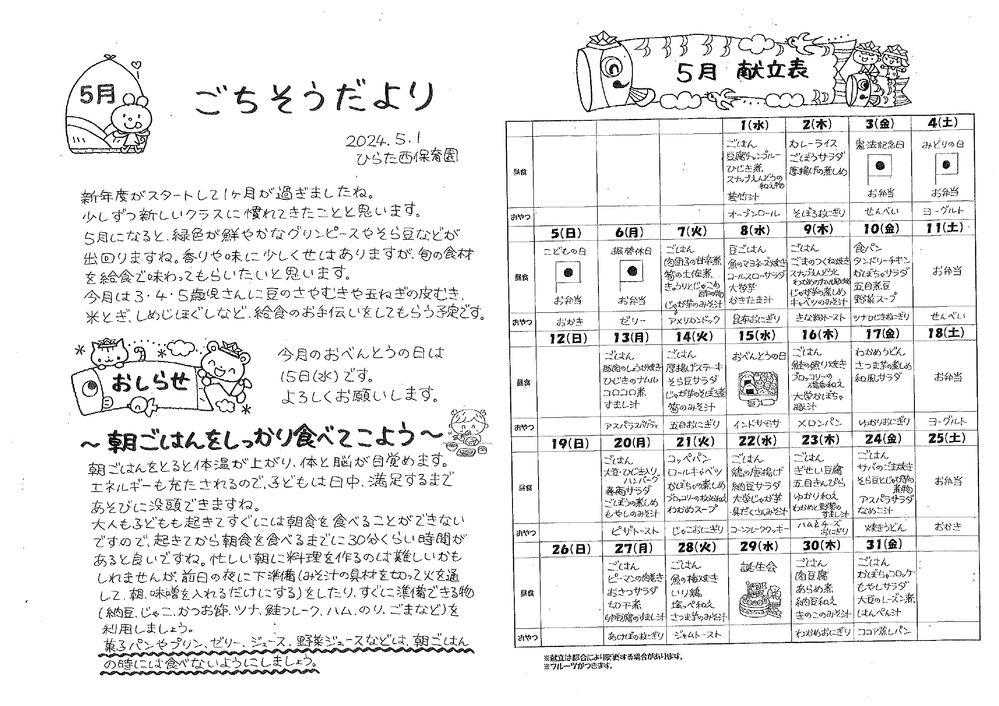 5月
ごちそうだより
2024.5.1
ひらた西保育園
新年度がスタートして1ヶ月が過ぎましたね。
少しずつ新しいクラスに慣れてきたことと思います。
5月になると、緑色が鮮やかなグリンピースやそら豆などが
出回りますね。香りや味に少しくせはありますが、旬の食材
を給食で味わってもらいたいと思います。
今月は3・4・5歳児さんに豆のさやむきや玉ねぎの皮むき、
米とぎ、しめじほぐしなど、給食のお手伝いをしてもらう予定です。
おしらせ
今月のおべんとうの日は
15日(水)です。
よろしくお願いします。
～朝ごはんをしっかり食べてこよう～
朝ごはんをとると体温が上がり、体と脳が目覚めます。
エネルギーも充たされるので、子どもは日中、満足するまで
あそびに没頭できますね。
大人も子どもも起きてすぐには朝食を食べることができない
ですので、起きてから朝食を食べるまでに30分くらい時間が
あると良いですね。忙しい朝に料理を作るのは難しいかも
しれませんが、前日の夜に下準備(みそ汁の具材を切って火を通
して、朝、味噌を入れるだけにする)をしたり、すぐに準備できる物
(納豆、じゃこ、かつお節、ツナ、鮭フレーク、ハム、のり、ごまなど)を
利用しましょう。
菓子パンやプリン、ゼリー、ジュース、野菜ジュースなどは、朝ごはん
の時には食べないようにしましょう。
5月 献立表
1(水) 2(木) 3(金) 4(土)
昼食
ごはん
豆腐チャンプルー
ひじき煮
スナップえんどうの
和え物
若竹汁
カレーライス
ごぼうサラダ
厚揚げの煮しめ
憲法記念日
お弁当
みどりの日
お弁当
おやつ
オープンロール そぼろおにぎり せんべい ヨーグルト
5(日) 6(月) 7(火) 8(水) 9(木) 10(金) 11(土)
昼食
こどもの日
お弁当
振替休日
お弁当
ごはん
肉団子の甘辛煮
筍の土佐煮
きゅうりとじゃこの
酢の物
じゃが芋のみそ汁
豆ごはん
魚のマヨネーズ焼き
コールスローサラダ
大学芋
かきたま汁
ごはん
ごまのつくね焼き
スナップえんどうと
わかめのナムル風和え
じゃが芋の煮しめ
キャベツのみそ汁
食パン
タンドリーチキン
かぼちゃサラダ
五目煮豆
野菜スープ
お弁当
おやつ
おかき ゼリー アメリカンドック 昆布おにぎり きな粉トースト ツナひじきおにぎり せんべい
12(日) 13(月) 14(火) 15(水) 16(木) 17(金) 18(土)
昼食
ごはん
豚肉のしょうが焼き
ひじきのナムル
コロコロ煮
すまし汁
ごはん
厚揚げステーキ
そら豆サラダ
じゃが芋のそぼろ煮
筍のみそ汁
おべんとうの日
ごはん
鮭の照り焼き
ブロッコリーの
塩昆布和え
大学かぼちゃ
豚汁
わかめうどん
さつま芋の煮しめ
和風サラダ
お弁当
おやつ
アスパラスパゲティ 五目おにぎり インドサモサ メロンパン ゆかりおにぎり ヨーグルト
19(日) 20(月) 21(火) 22(水) 23(木) 24(金) 25(土)
昼食
ごはん
大豆・ひじき入り
ハンバーグ
春雨サラダ
ごぼうの煮しめ
もやしのみそ汁
コッペパン
ロールキャベツ
かぼちゃの煮しめ
ブロッコリーのおかか和え
わかめスープ
ごはん
鶏の唐揚げ
納豆サラダ
大学じゃが芋
具だくさんみそ汁
ごはん
ぎせい豆腐
五目きんぴら
ゆかり和え
わかめと野菜の
すまし汁
ごはん
サバのごま焼き
そら豆とじゃが芋の
煮物
アスパラサラダ
なめこ汁
お弁当
おやつ
ピザトースト じゃこおにぎり コーンフレーククッキー ハム&チーズ
おにぎり
焼きうどん おかき
26(日) 27(月) 28(火) 29(水) 30(木) 31(金)
昼食
ごはん
ピーマンの肉巻き
おさつサラダ
切り干煮
卵豆腐のすまし汁
ごはん
魚の梅焼き
いり鶏
塩っぺ和え
さつま芋のみそ汁
誕生会
ごはん
肉豆腐
あらめ煮
納豆和え
きのこのみそ汁
ごはん
かぼちゃコロッケ
もやしサラダ
大豆のレーズン煮
はんぺん汁
おやつ
あけぼのおにぎり ジャムトースト わかめおにぎり ココア蒸しパン
※献立は都合により変更する場合があります。
※フルーツがつきます。